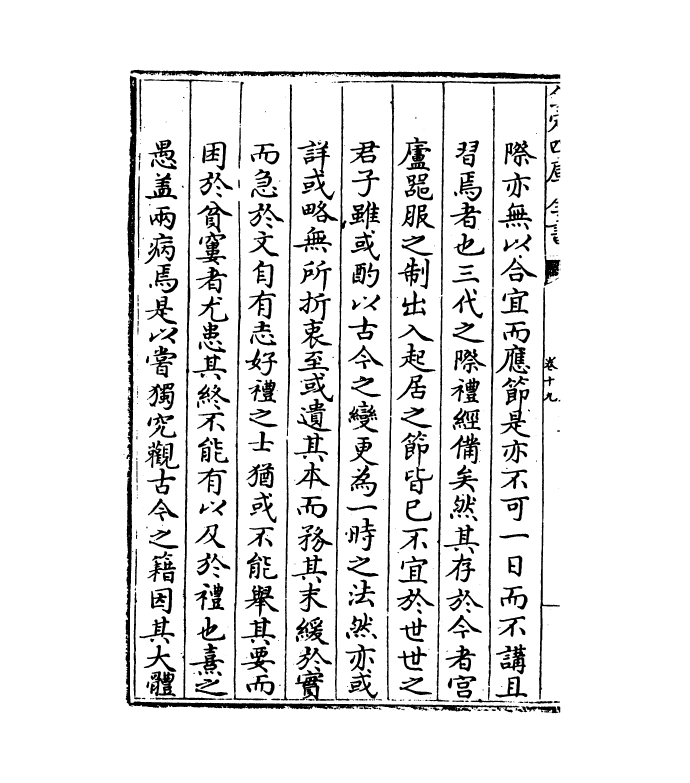 際亦無以合宜而應節是亦不可一日而不講且
習焉者也三代之際禮經備矣然其存於今者宫
廬器服之制出入起居之節皆已不宜於世世之
君子雖或酌以古今之變更為一時之法然亦或
詳或略無所折衷至或遺其本而務其末緩於實
而急於文自有志好禮之士猶或不能舉其要而
困於貧窶者尤患其終不能有以及於禮也熹之
愚盖兩病焉是以嘗獨究觀古今之籍因其大體
卷十九